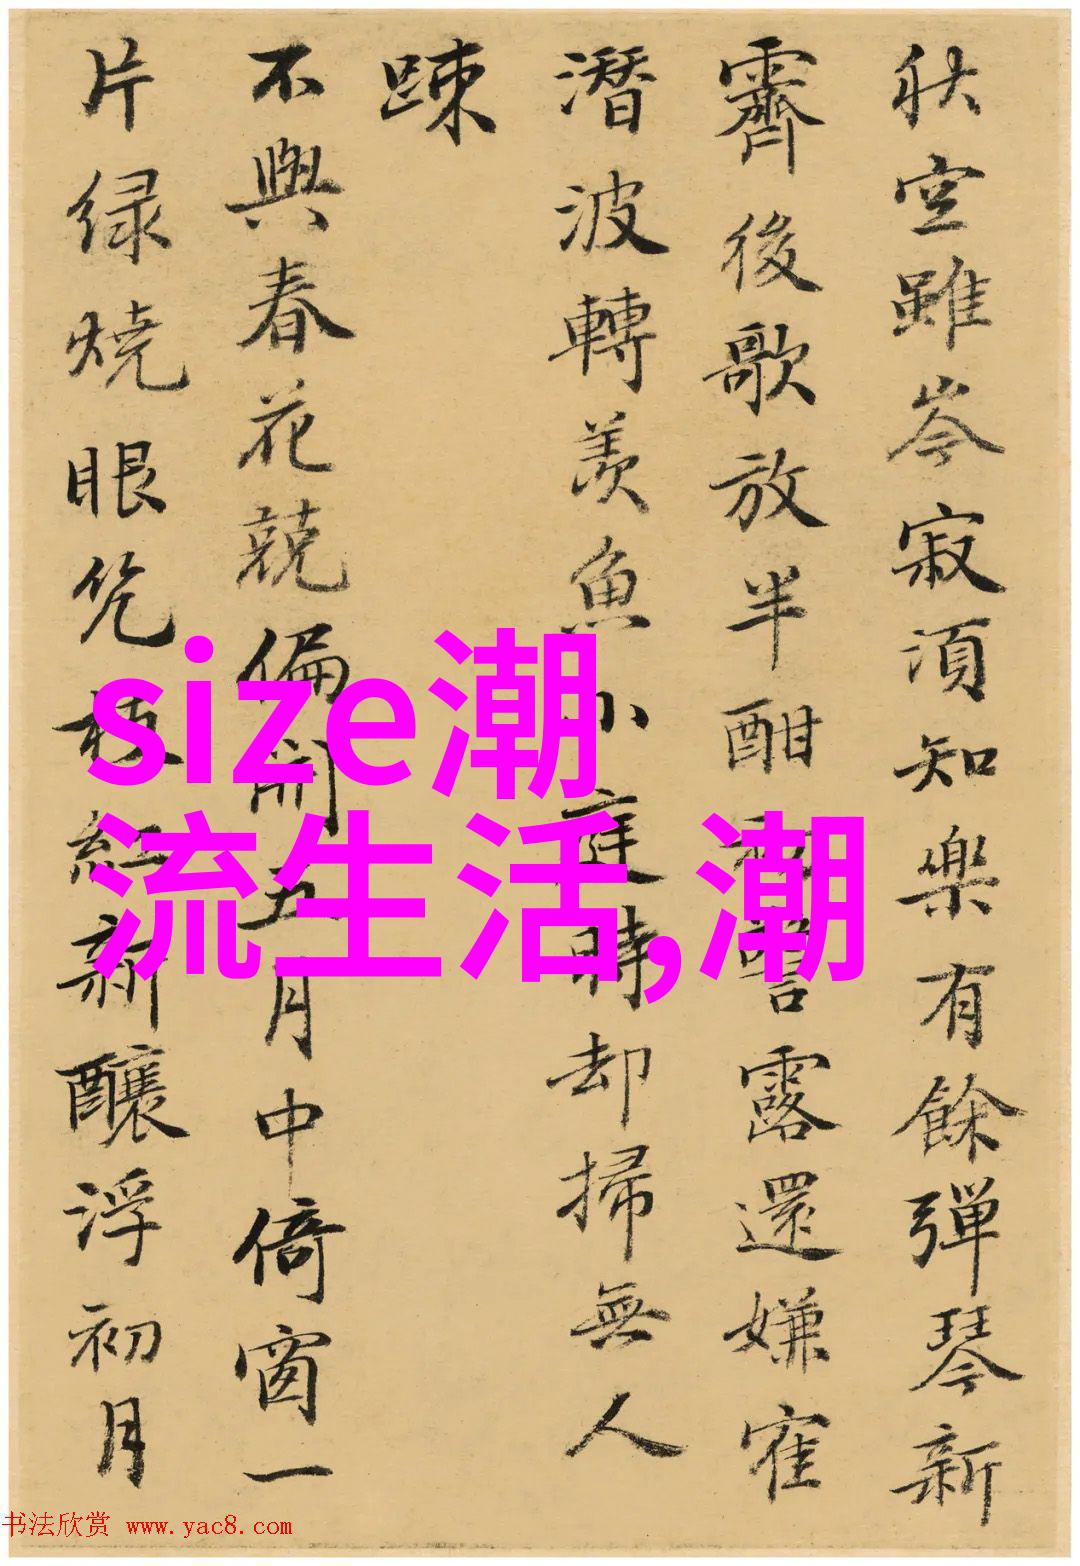 秋空雖岑寂湏知樂有餘彈琴新
霽後歌放半酣初警露還嫌寉
潛波轉羨魚小庭時却掃無人
踈
不與春花競偏開五月中倚窗一
片緑燒眼枝紅新釀浮初月
size潮
流生活,潮
书法欣赏 www.yac8.com